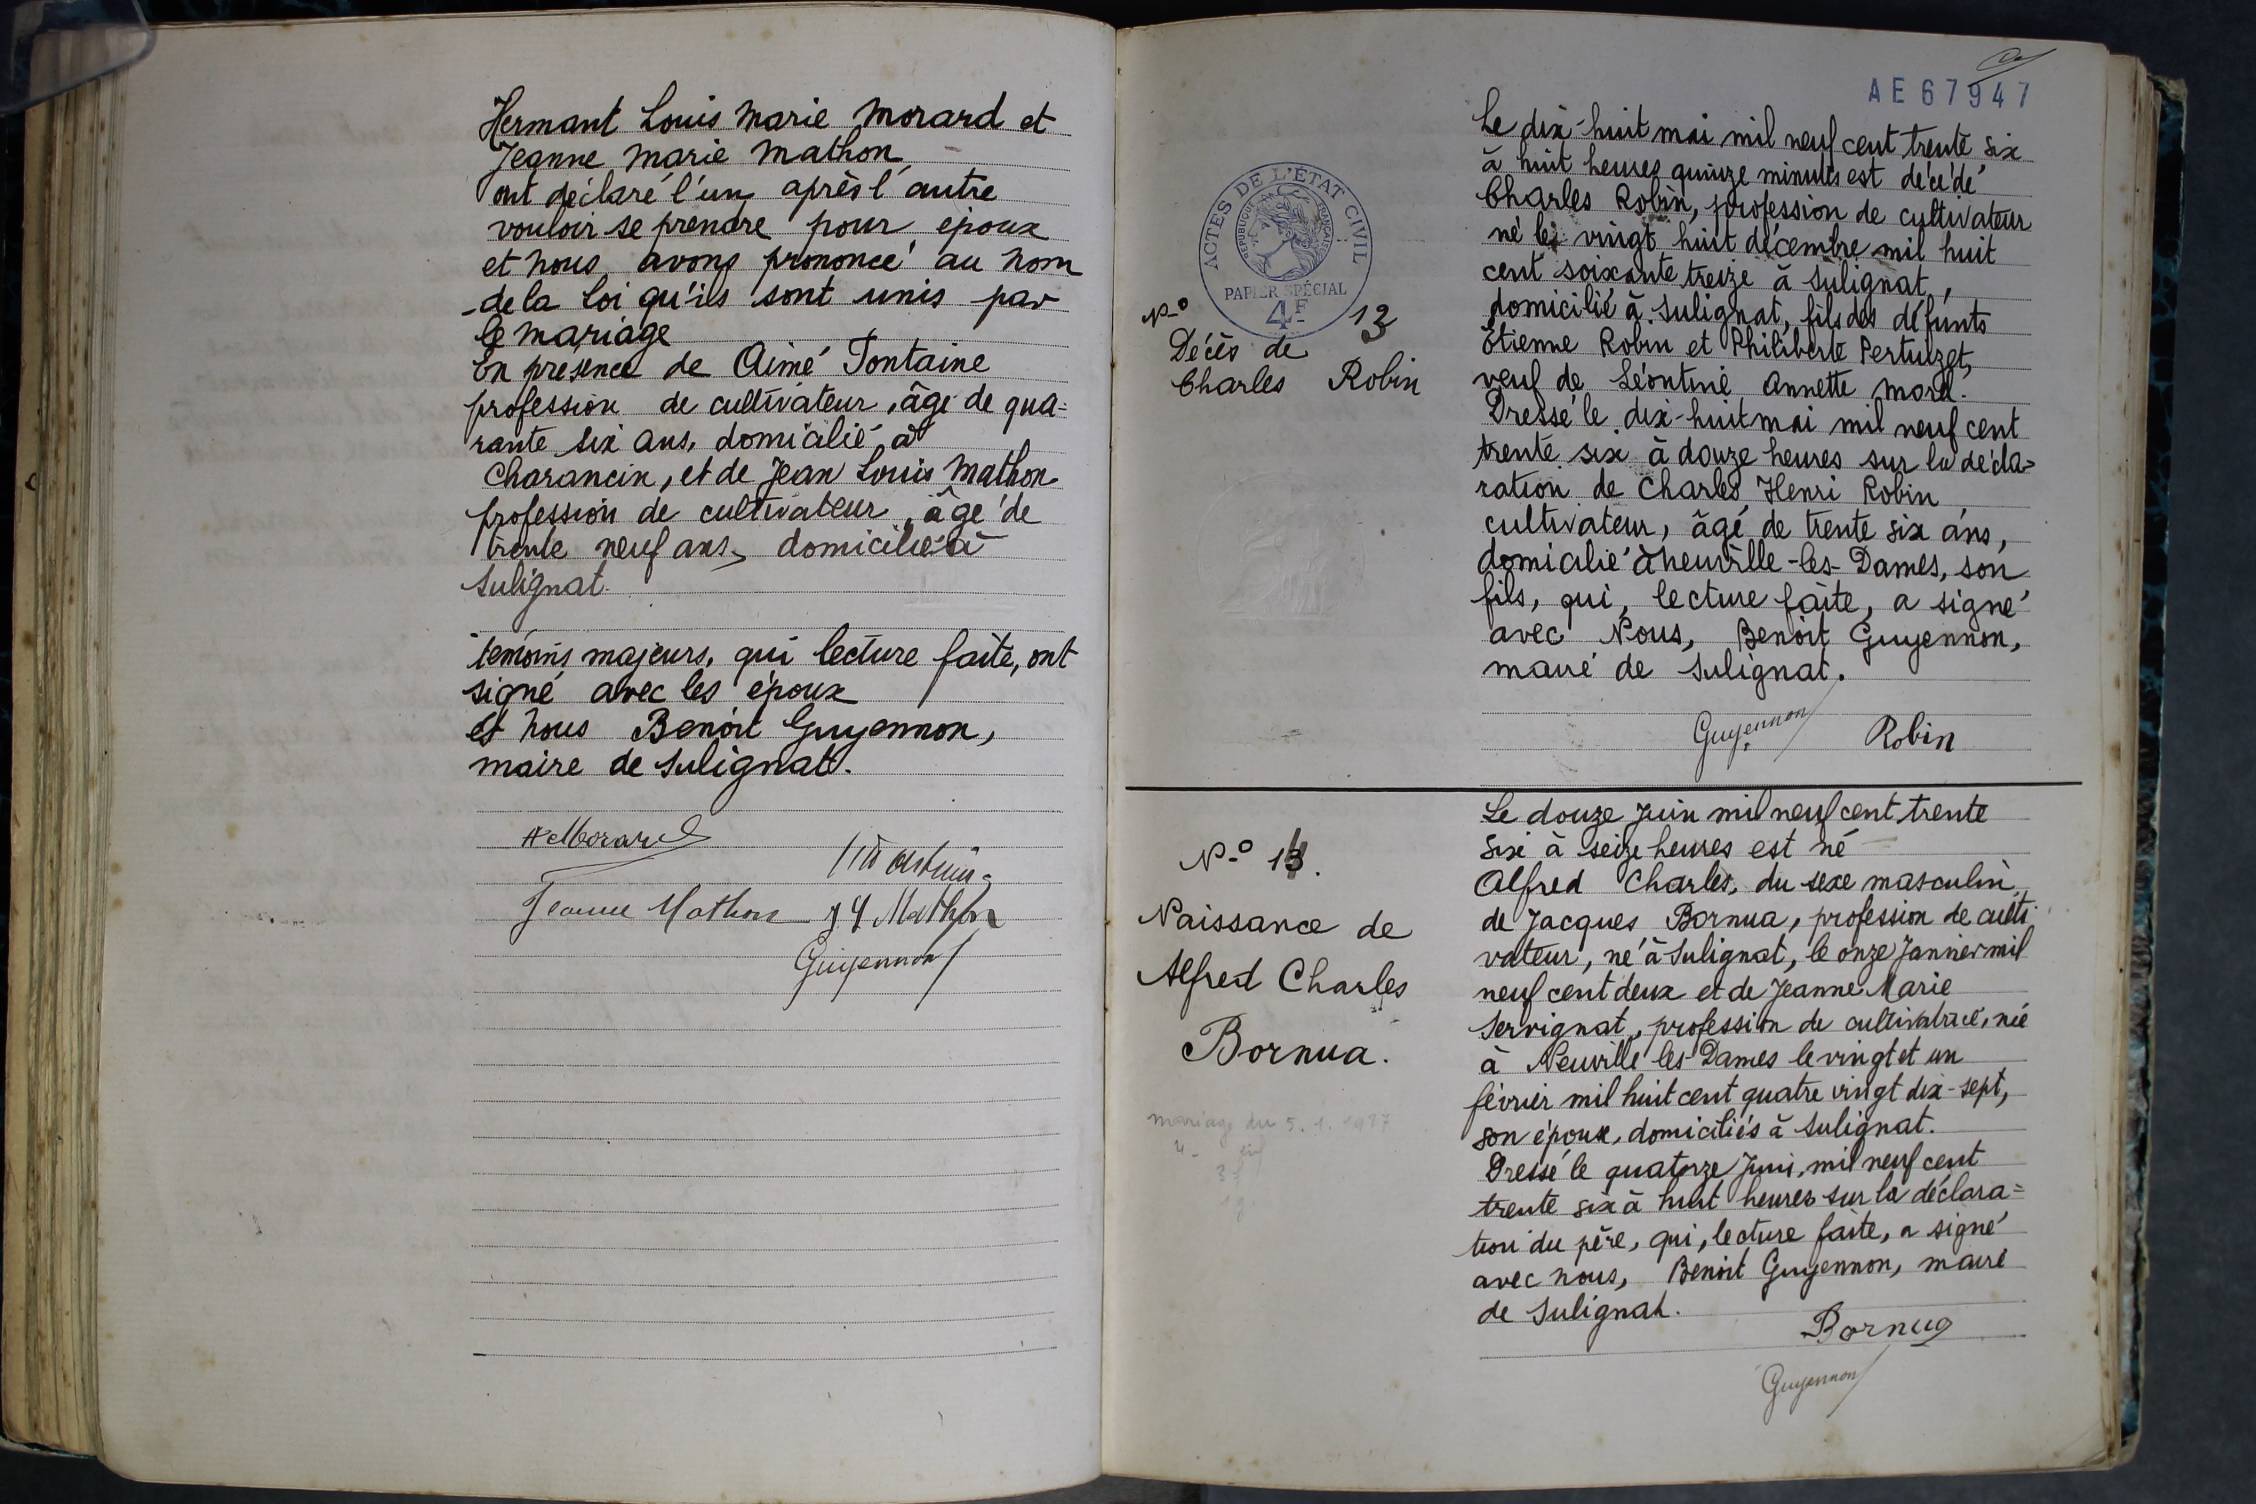 Hermant Louis Marie Morard et
Jeanne Marie Mathon
ont déclaré l'un après l'autre
vouloir se prendre pour époux
et nous avons prononcé au nom
de la loi qu'ils sont unis par
le mariage
En présence de Aimé Fontaine
profession de cultivateur, âgé de qua=
rante six ans, domicilié à
Charancin, et de Jean Louis Mathon
profession de cultivateur, âgé de
trente neuf ans, domicilié à
Sulignat.
témoins majeurs, qui lecture faite, ont
signé avec les époux
et nous Benoit Guyennon,
maire de Sulignat.
Morard
Jeanne Mathon
Mathon
Guyennon
AE67947
ACTES DE L'ÉTAT CIVIL
REPUBLIQUE FRANÇAISE
PAPIER SPÉCIAL
4F
N-o 13
Décès de
Charles Robin
Le dix-huit mai mil neuf cent trente six
à huit heures quinze minutes est décédé
Charles Robin, profession de cultivateur
né le vingt huit décembre mil huit
cent soixante treize à Sulignat,
domicilié à Sulignat, fils des défunts
Etienne Robin et Philiberte Pertuizet,
veuf de Léontine Annette Morel.
Dressé le dix-huit mai mil neuf cent
trente six à douze heures sur la décla=
ration de Charles Henri Robin
cultivateur, âgé de trente six ans,
domicilié à Neuville-les-Dames, son
fils, qui, lecture faite, a signé
avec Nous, Benoit Guyennon,
maire de Sulignat.
Guyennon Robin
N-o
Naissance de
Alfred Charles
Bornua.
mariage du 5. 1.
Le douze Juin mil neuf cent trente
six à seize heures est né
Alfred Charles, du sexe masculin
de Jacques Bornua, profession de culti
vateur, né à Sulignat, le onze Janvier mil
neuf cent deux et de Jeanne Marie
Servignat, profession de cultivatrice, née
à Neuville les-Dames le vingt et un
février mil huit cent quatre vingt dix-sept,
son épouse, domiciliés à Sulignat.
Dressé le quatorze Juin, mil neuf cent
trente six à huit heures sur la déclara=
tion du père, qui, lecture faite, a signé
avec nous, Benoit Guyennon, maire
de Sulignat.
Bornua
Guyennon